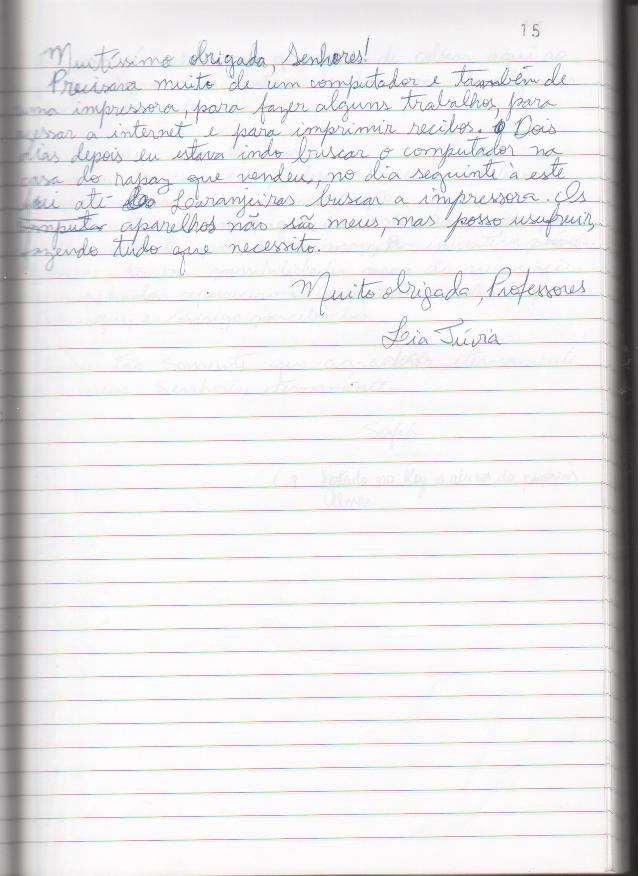 15
Muitíssimo obrigada, Senhores!
Precisava muito de um computador e também de
uma impressora, para fazer alguns trabalhos, para
acessar a internet e para imprimir recibos. Dois
dias depois eu estava indo buscar o computador na
casa do rapaz que vendeu, no dia seguinte à este
fui até Laranjeiras buscar a impressora. Os
aparelhos não são meus, mas posso usufruir,
fazendo tudo que necessito.
Muito obrigada, Professores
Lia Túvia